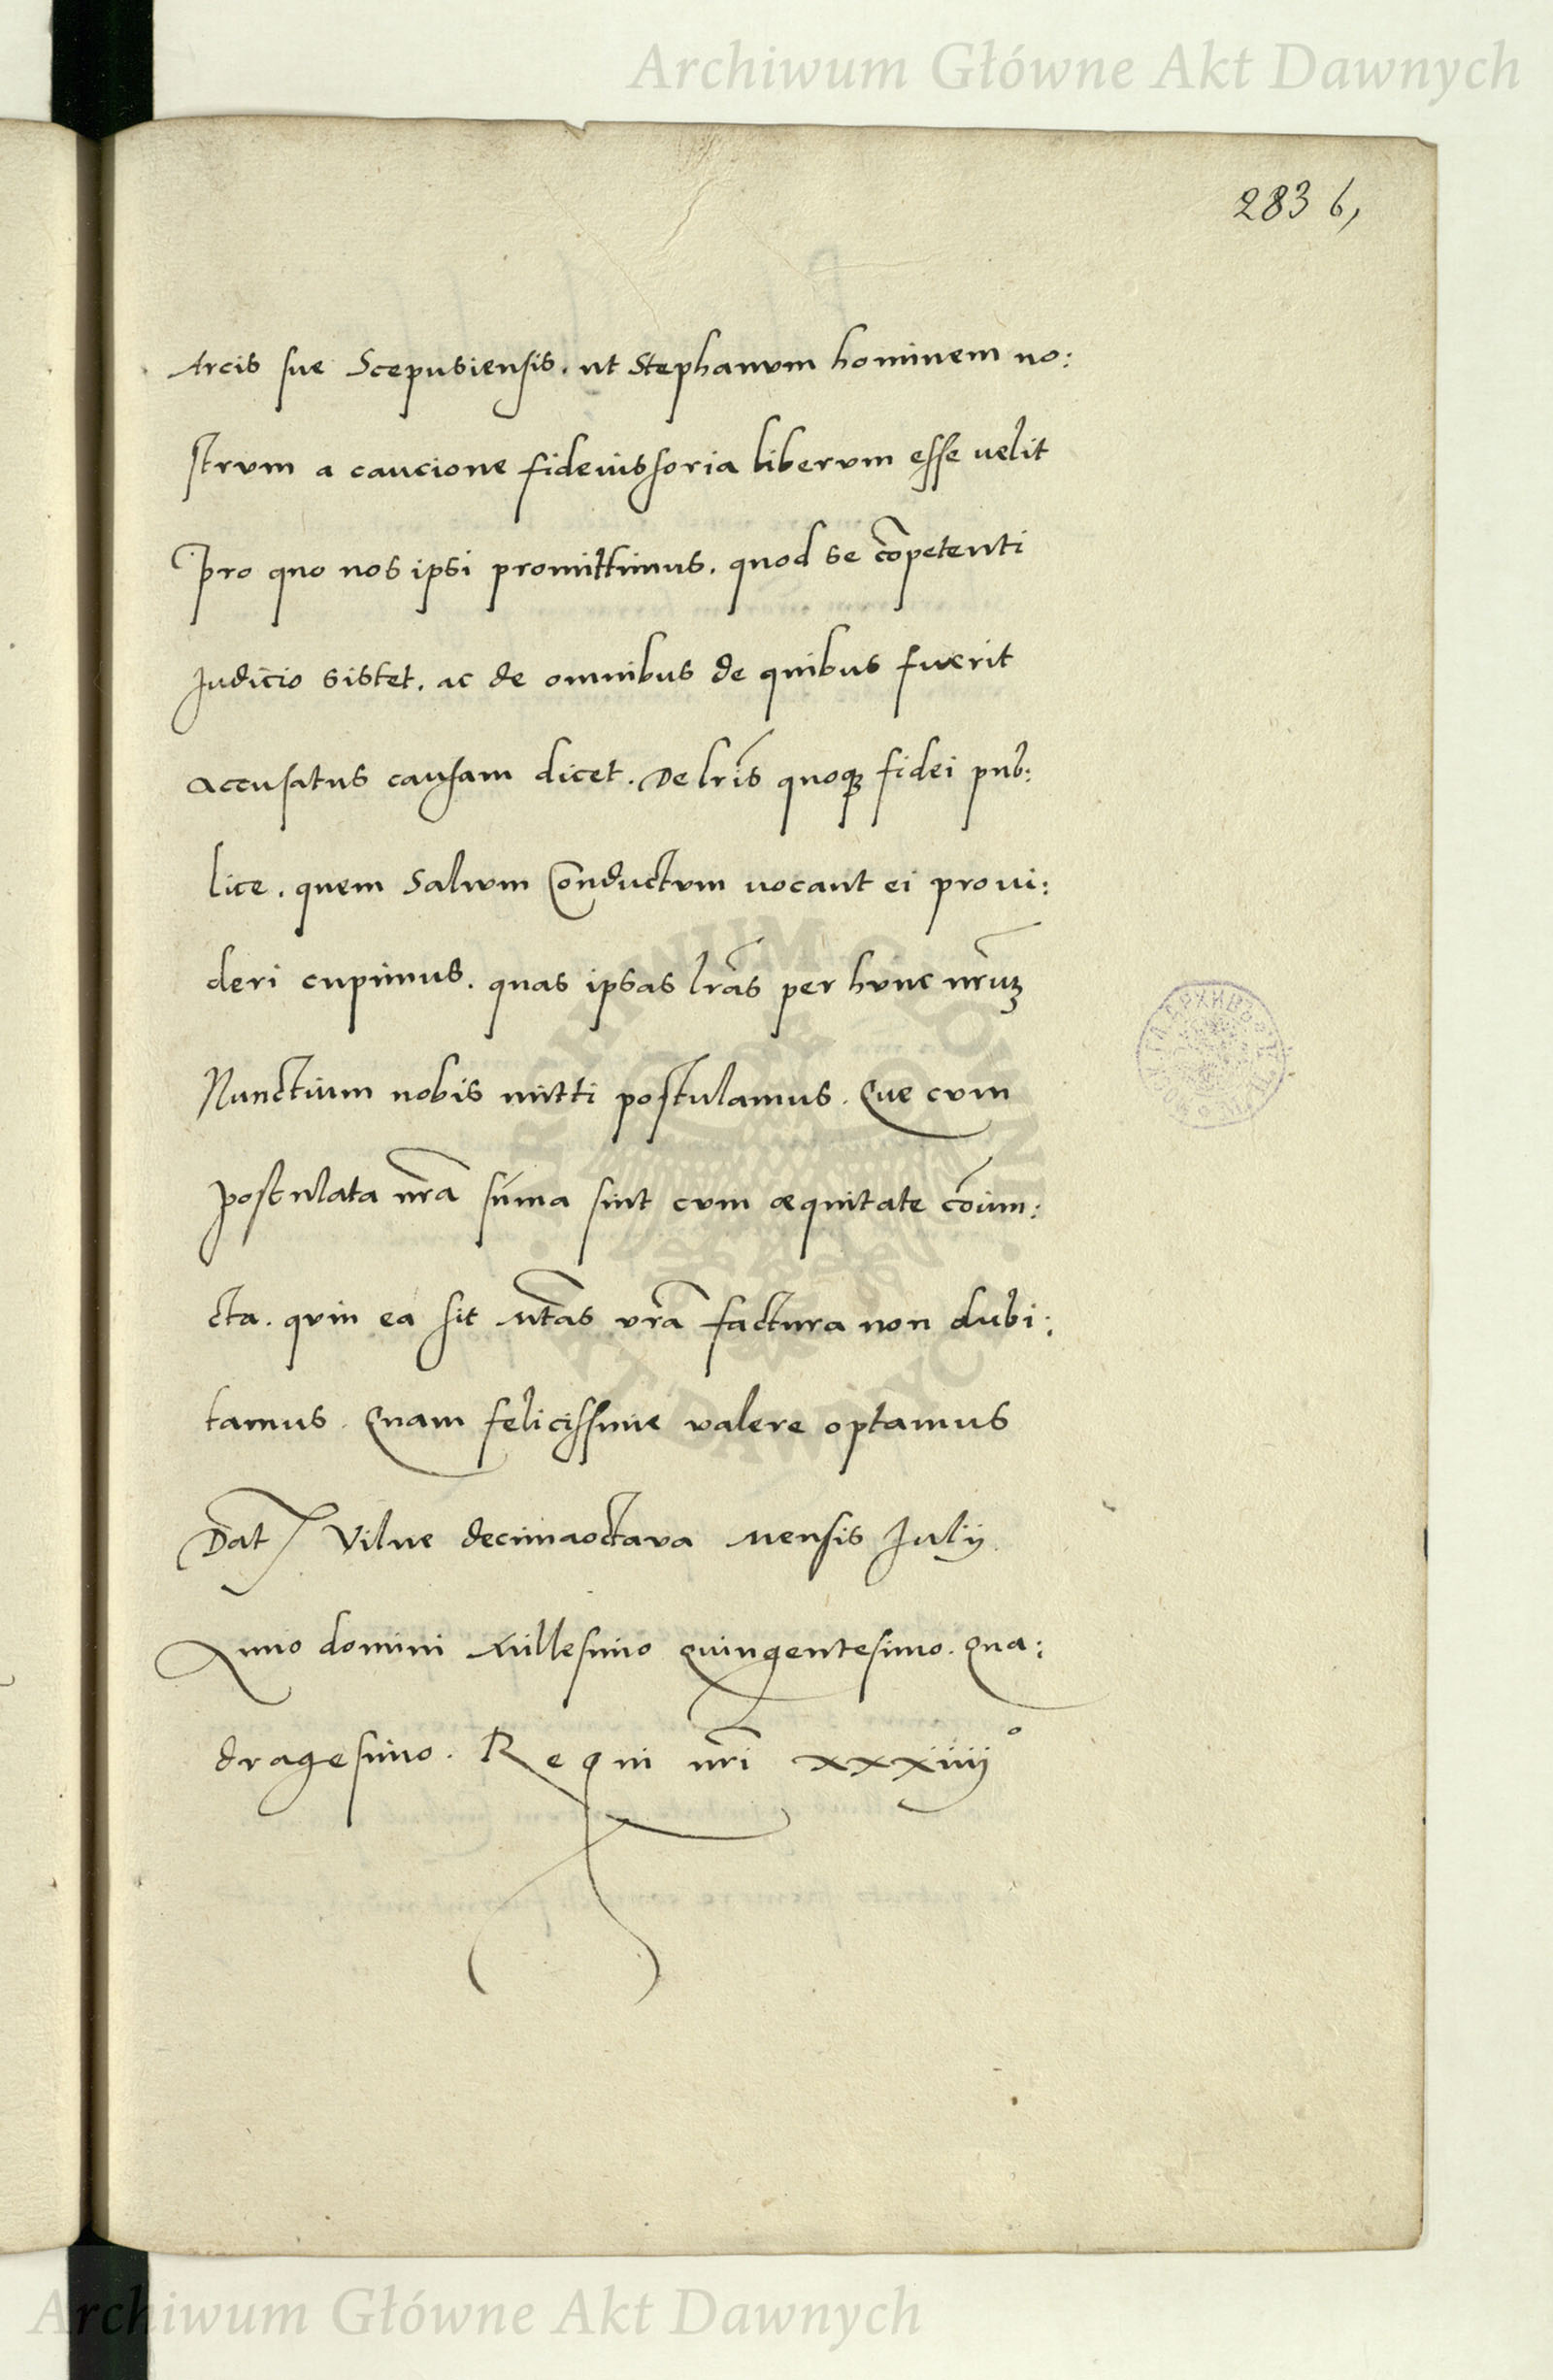 Archiwum Główne Akt Dawnych
283 6,
Arcis sue Scepusiensis. ut Stephanum hominem no:
strum a caucione fideiussoria liberum esse uelit
Pro quo nos ipsi promittimus. quod se cōpetenti
Judicio sistet. ac de omnibus de quibus fuerit
accusatus causam dicet. De lr̄is quoqꝫ fidei pub:
lice. quem Saluum Conductum uocant ei proui:
deri cupimus. quas ipsas lr̄as per hunc nr̄uꝫ
Nunctium nobis mitti postulamus. Que cum
postulata nr̄a sūma sint cum æquitate cōiun:
cta. quin ea sit Mtās vr̄a factura non dubi:
tamus. Quam felicissime valere optamus
Dat̄ Vilne decimaoctava mensis Julij.
Anno domini Millesimo Quingentesimo. Qua:
dragesimo. Regni nr̄i xxxiiijº
ARCHIWUM GŁÓWNE
AKT DAWNYCH
Archiwum Główne Akt Dawnych